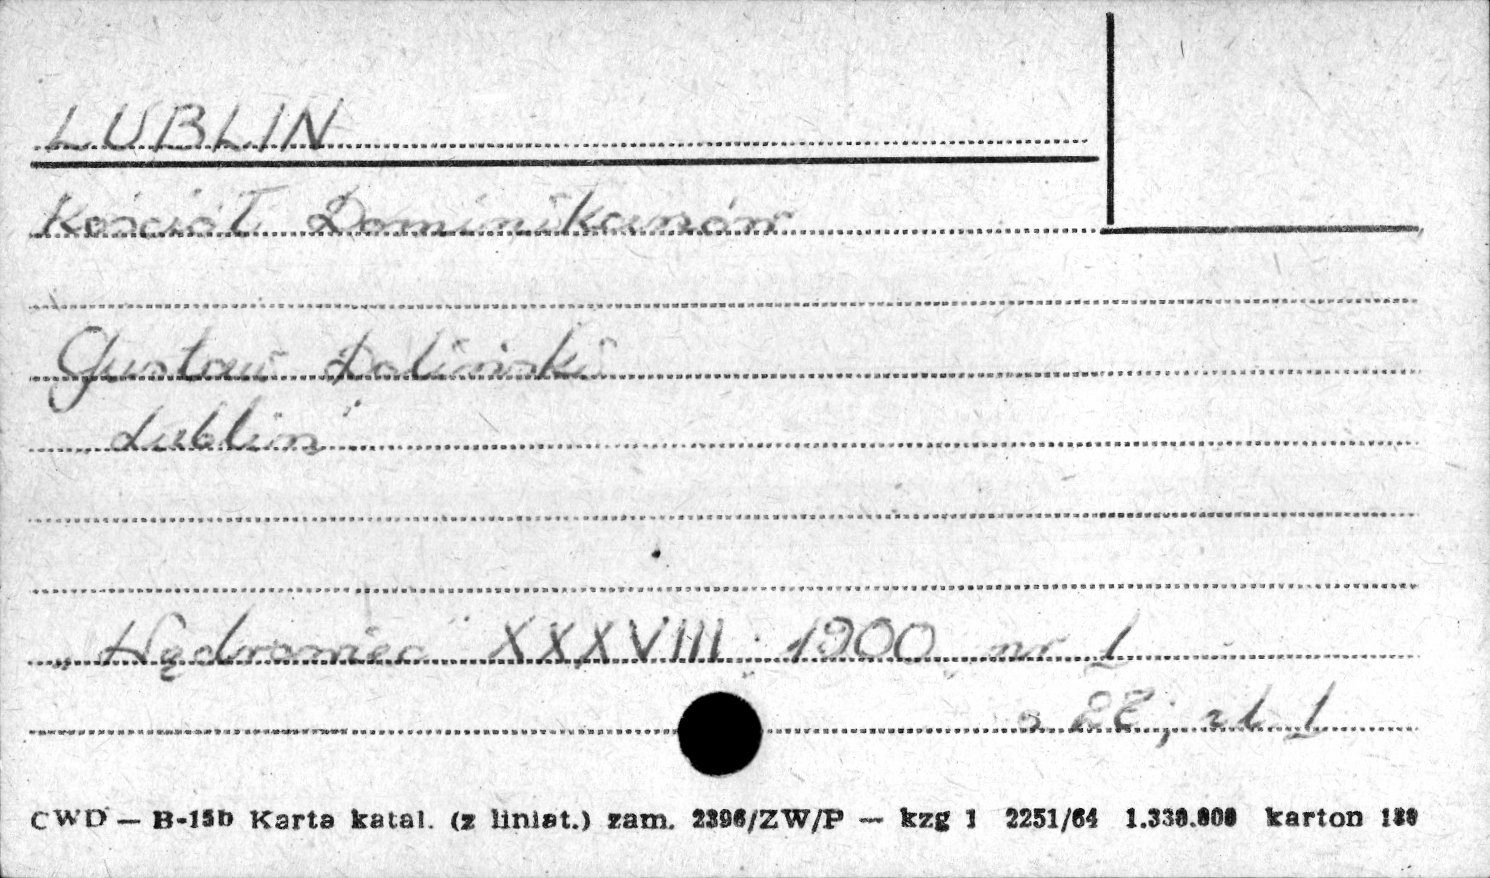 LUBLIN
Kościół Dominikanów
Gustaw Doliński
Lublin
„Wędrowiec" XXXVIII 1900 nr 1
s 22; il. 1
CWD — B-15b Karta katal. (z liniat.) zam. 2396/ZW/P — kzg 1 2251/64 1.330.000 karton 180